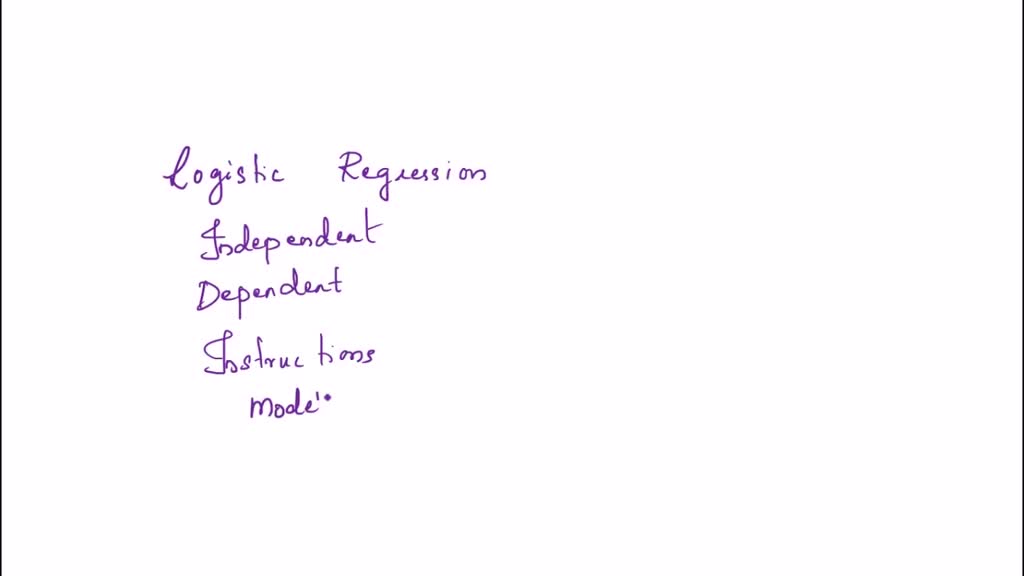 Logistic Regression
Independent
Dependent
Instructions